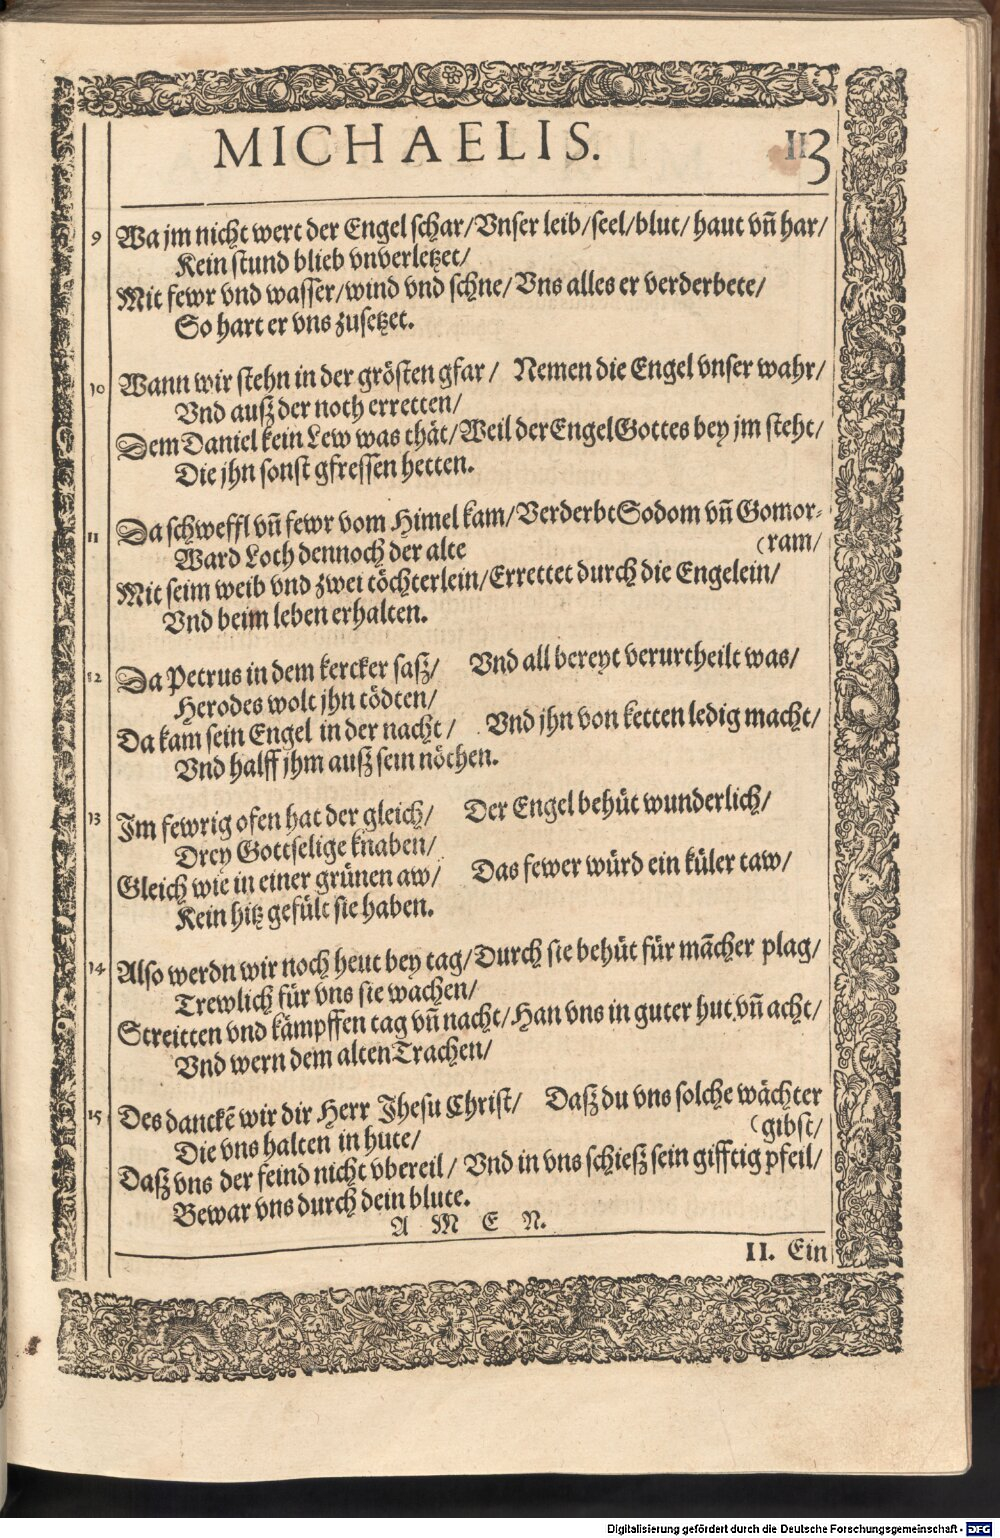 MICHAELIS. 113
9 Wa jm nicht wert der Engel schar/ Vnser leib/ seel/ blut/ haut vñ har/
Kein stund blieb vnverletzet/
Mit fewr vnd wasser/ wind vnd schne/ Vns alles er verderbete/
So hart er vns zusetzet.
10 Wann wir stehn in der grösten gfar/ Nemen die Engel vnser wahr/
Vnd auß der noth erretten/
Dem Daniel kein Lew was thät/ Weil der Engel Gottes bey jm steht/
Die jhn sonst gfressen hetten.
11 Da schweffl vñ fewr vom Himel kam/ Verderbt Sodom vñ Gomor-
Ward Loth dennoch der alte (ram/
Mit seim weib vnd zwei töchterlein/ Errettet durch die Engelein/
Vnd beim leben erhalten.
12 Da Petrus in dem kercker saß/ Vnd all bereyt verurtheilt was/
Herodes wolt jhn tödten/
Da kam sein Engel in der nacht/ Vnd jhn von ketten ledig macht/
Vnd halff jhm auß sein nöthen.
13 Im fewrig ofen hat der gleich/ Der Engel behüt wunderlich/
Drey Gottselige knaben/
Gleich wie in einer grünen aw/ Das fewer würd ein küler taw/
Kein hitz gefült sie haben.
14 Also werdn wir noch heut bey tag/ Durch sie behüt für mãcher plag/
Trewlich für vns sie wachen/
Streitten vnd kämpffen tag vñ nacht/ Han vns in guter hut vñ acht/
Vnd wern dem alten Trachen/
15 Des danckẽ wir dir Herr Jhesu Christ/ Daß du vns solche wächter
Die vns halten in hute/ (gibst/
Daß vns der feind nicht vbereil/ Vnd in vns schieß sein gifftig pfeil/
Bewar vns durch dein blute.
A M E N.
II. Ein
Digitalisierung gefördert durch die Deutsche Forschungsgemeinschaft - DFG